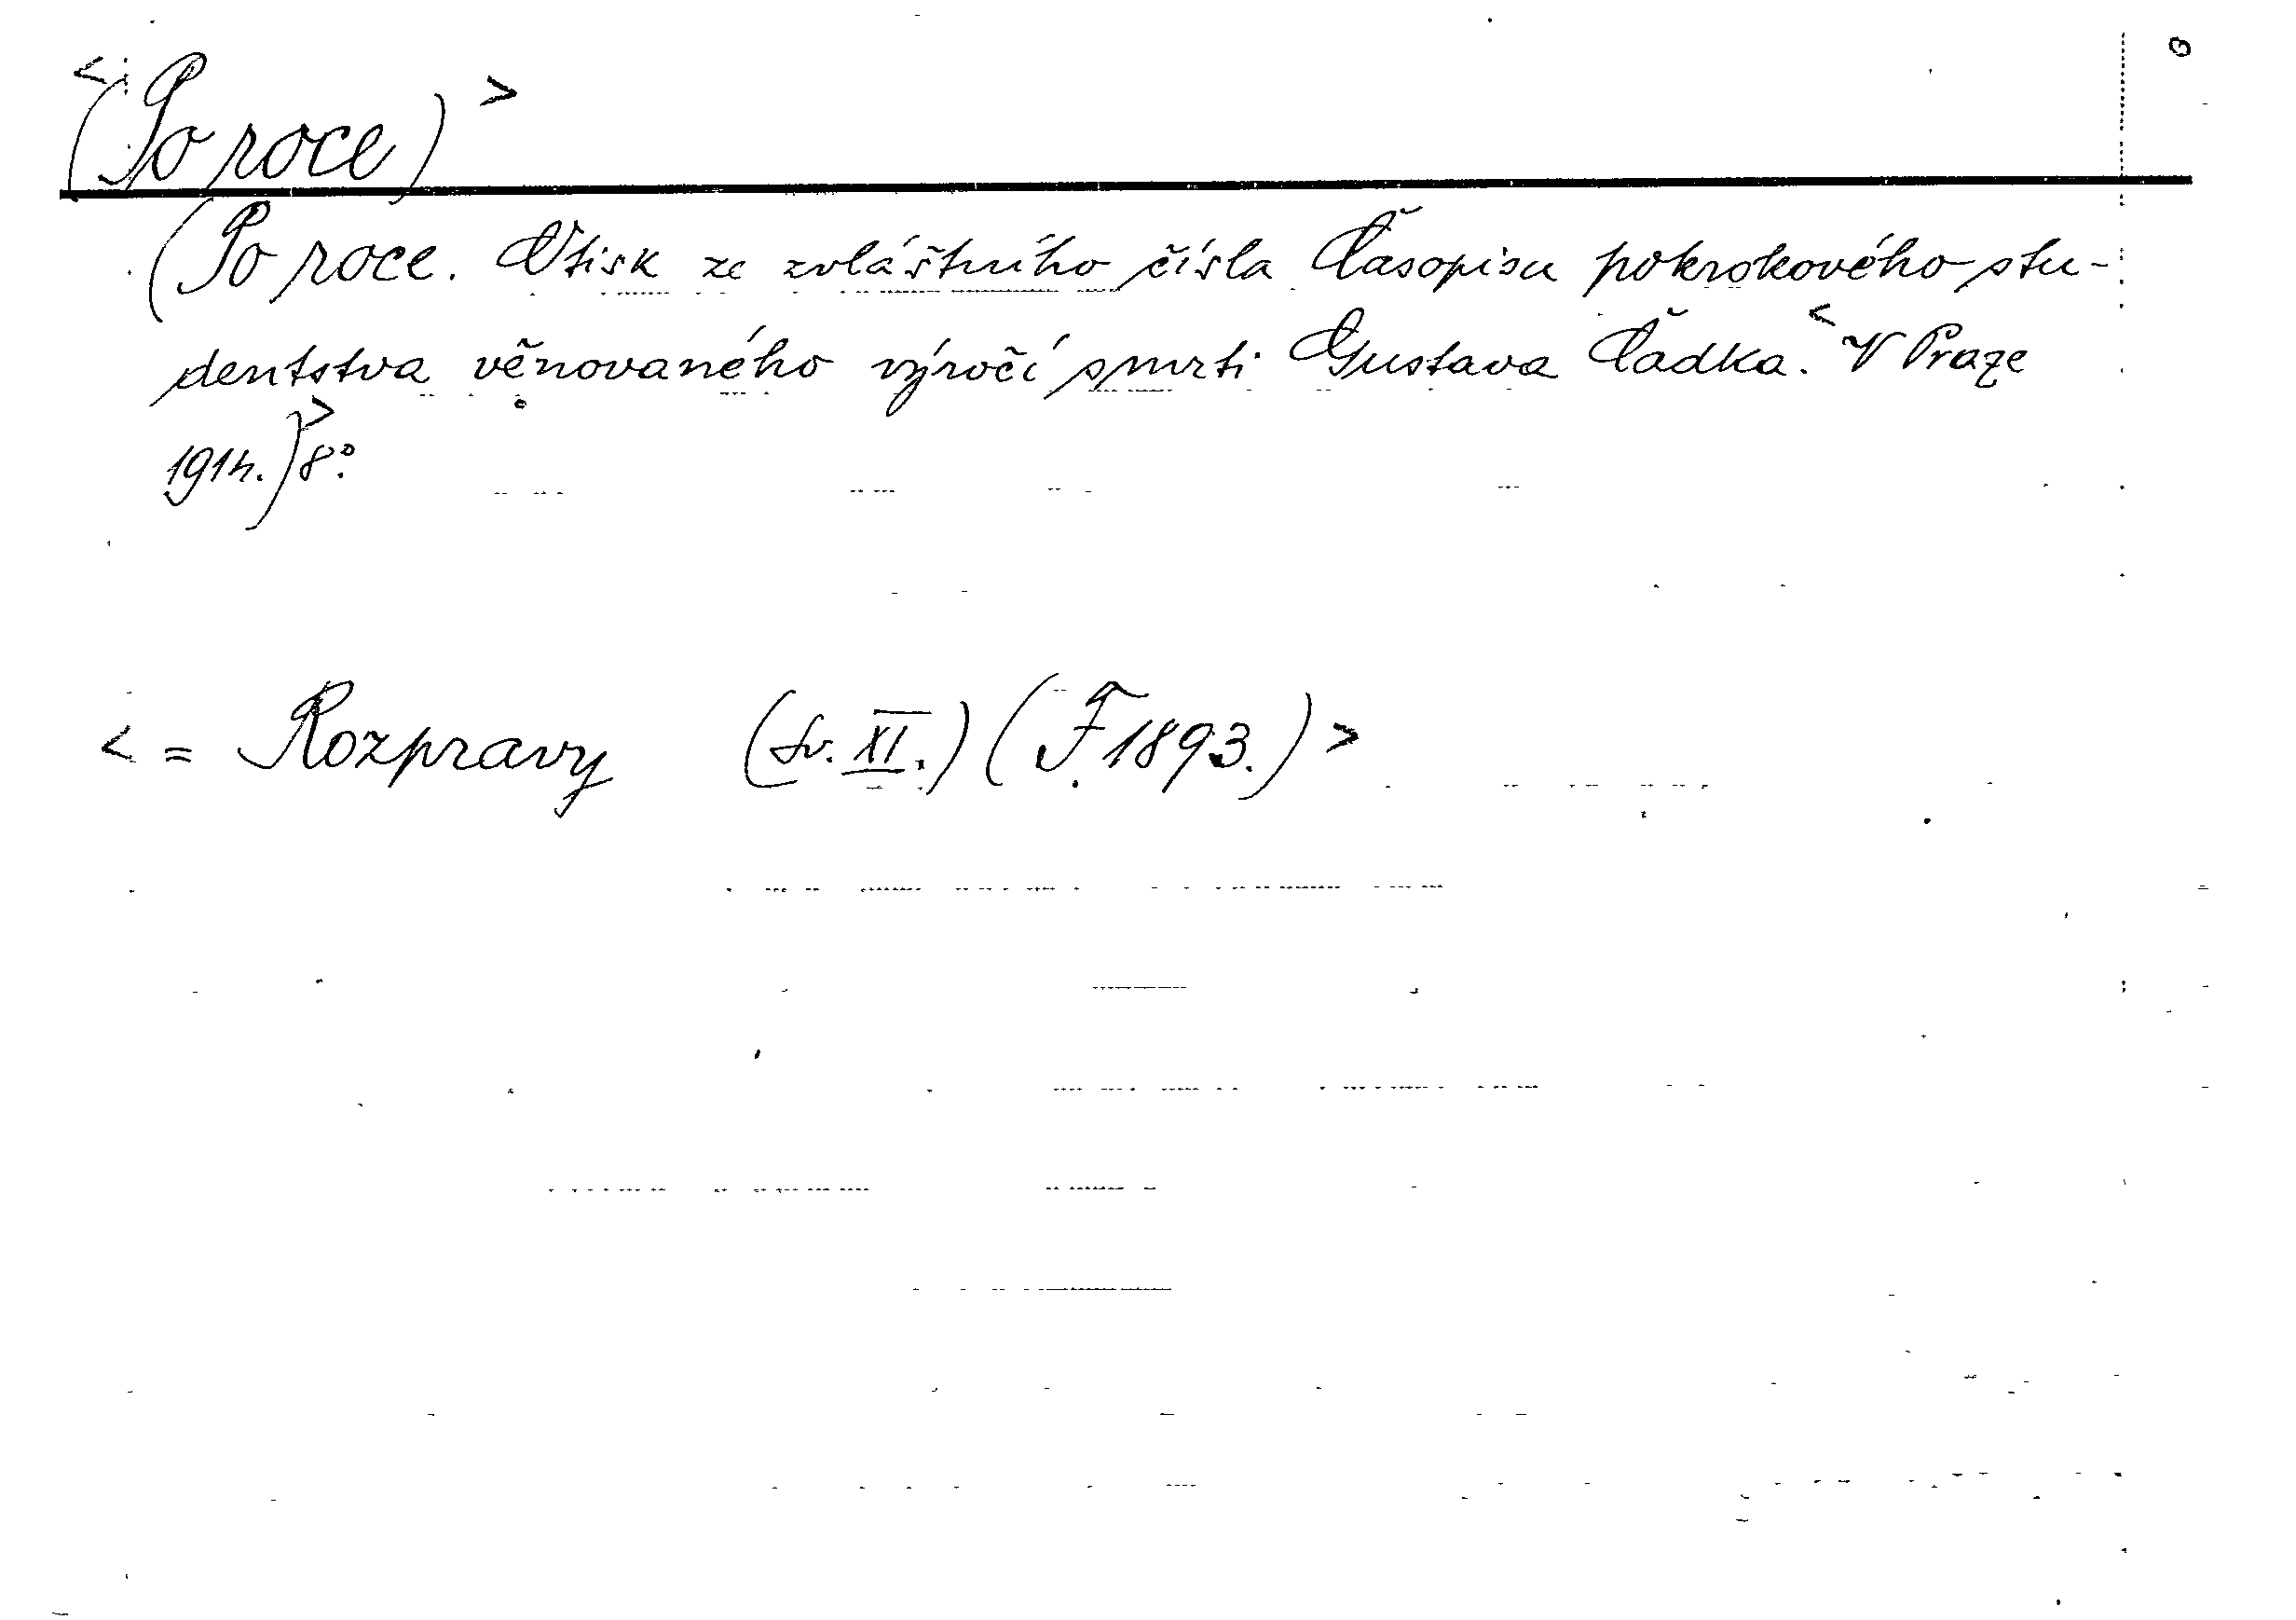 <(Po roce)>
(Po roce. Otisk ze zvláštního čísla Časopisu pokrokového stu-
dentstva věnovaného výročí smrti Gustava Čadka. <V Praze
1914.)> 8°.
< = Rozpravy (sv. XI.) (F 1893.) >